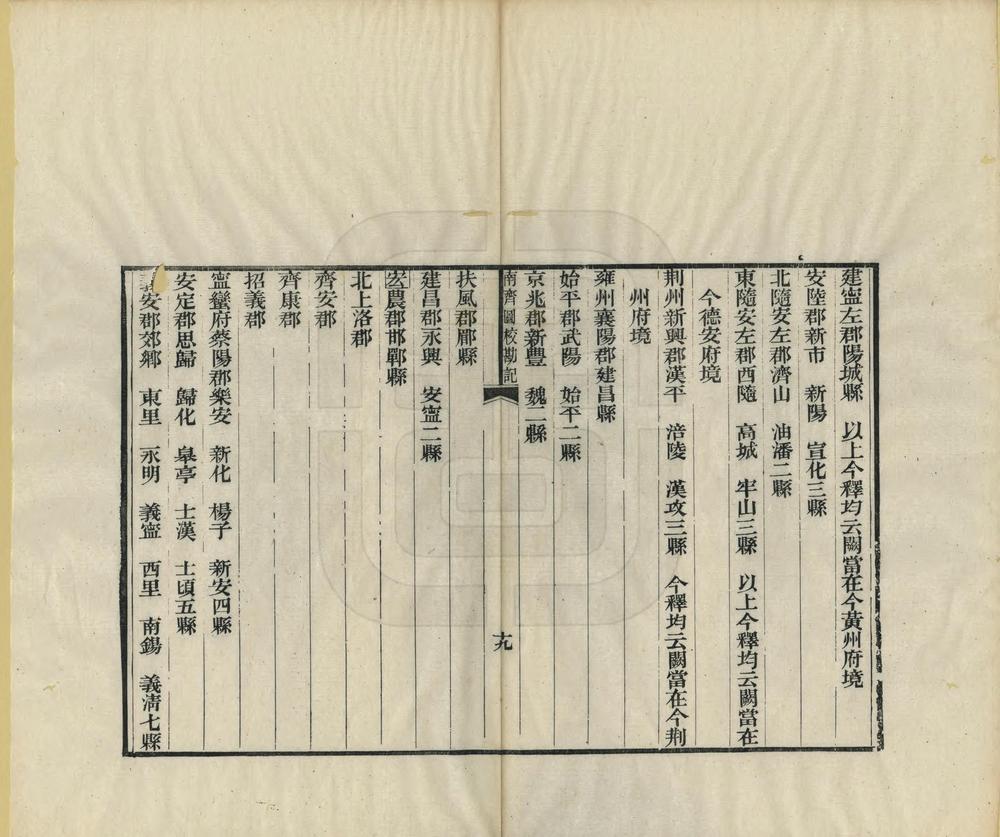 建寧左郡陽城縣　以上今釋均云闕當在今黃州府境
安陸郡新市　新陽　宣化三縣
北隨安左郡濟山　油潘二縣
東隨安左郡西隨　高城　牢山三縣　以上今釋均云闕當在
今德安府境
荆州新興郡漢平　涪陵　漢攻三縣　今釋均云闕當在今荆
州府境
雍州襄陽郡建昌縣
始平郡武陽　始平二縣
京兆郡新豐　魏二縣
南齊圖校勘記
十九
扶風郡郿縣
建昌郡永興　安寧二縣
宏農郡邯鄲縣
北上洛郡
齊安郡
齊康郡
招義郡
寧蠻府蔡陽郡樂安　新化　楊子　新安四縣
安定郡思歸　歸化　皋亭　士漢　士頃五縣
義安郡郊鄉　東里　永明　義寧　西里　南錫　義清七縣